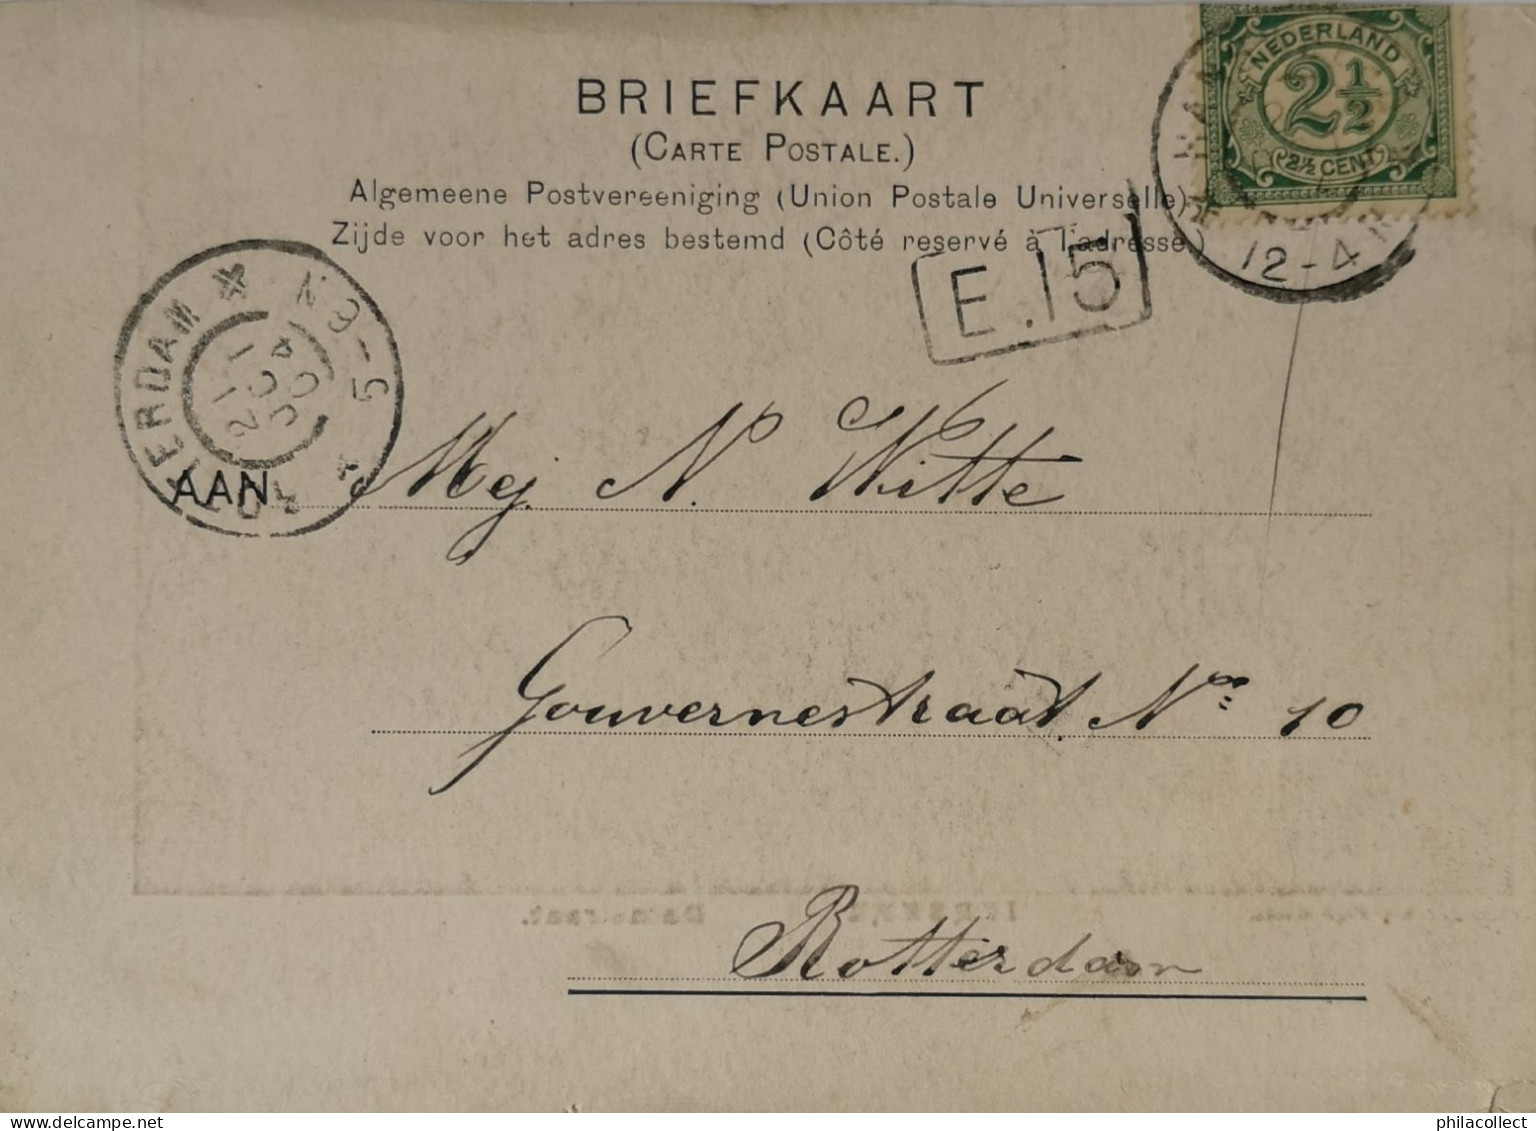 BRIEFKAART
(CARTE POSTALE.)
Algemeene Postvereeniging (Union Postale Universelle)
Zijde voor het adres bestemd (Côté reservé à l'adresse)
NEDERLAND
2 1/2
2½ CENT
12-4N
E.15
N 3-5
AAN
Mej. N. Witte
Gouvernestraat No 10
Rotterdam
philacollect